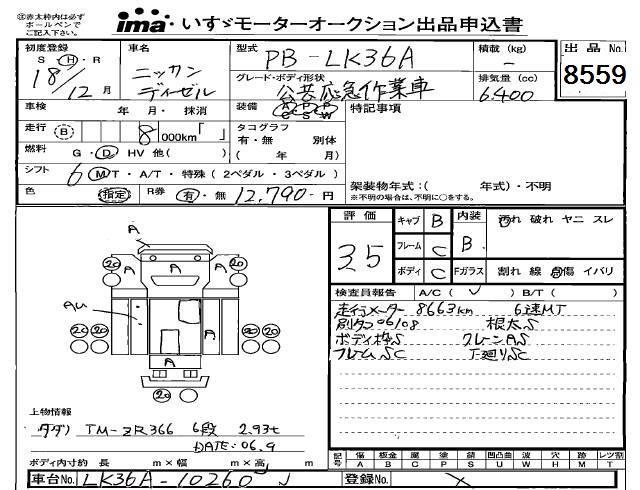 ㊟赤太枠内は必ず
ボールペンで
ご記入下さい。
ima いすゞモーターオークション出品申込書
初度登録
S・H・R
18/12月
車名
ニッサン
ディーゼル
型式 PB-LK36A
グレード・ボディ形状
公共応急作業車
積載 (kg)
-
排気量 (cc)
6400
出品No.
8559
車検 年 月・抹消
装備 AC PS PW
特記事項
走行 B 8 000km「 」
タコグラフ
有・無 別体
( 年 月)
燃料 G・D HV 他( )
シフト 6 MT・A/T・特殊 (2ペダル・3ペダル)
架装物年式:( 年式)・不明
※不明の場合は、不明に○をする。
色 指定 R券 有・無 12,790-円
評価
35
キャブ B 内装 汚れ 破れ ヤニ スレ
フレーム C B
ボディ C Fガラス 割れ 線 傷 イバリ
検査員報告 A/C( ✓ ) B/T( )
走行メーター 8663km 6速MT
別タコ06/08 根太S
ボディ枠S クレーンAS
フレームSC 下廻りSC
A
20 20
A A A
AU
20 20 20 20
A
20
上物情報
タダノ TM-ZR366 6段 2.93t
DATE:06.9
ボディ内寸約 長 m×幅 m×高 m
記号 傷 板金 腐 塗 錆 凹凸曲 波 穴 長 レツ割
A B C P S U W H M T
車台No. LK36A-10260 登録No.